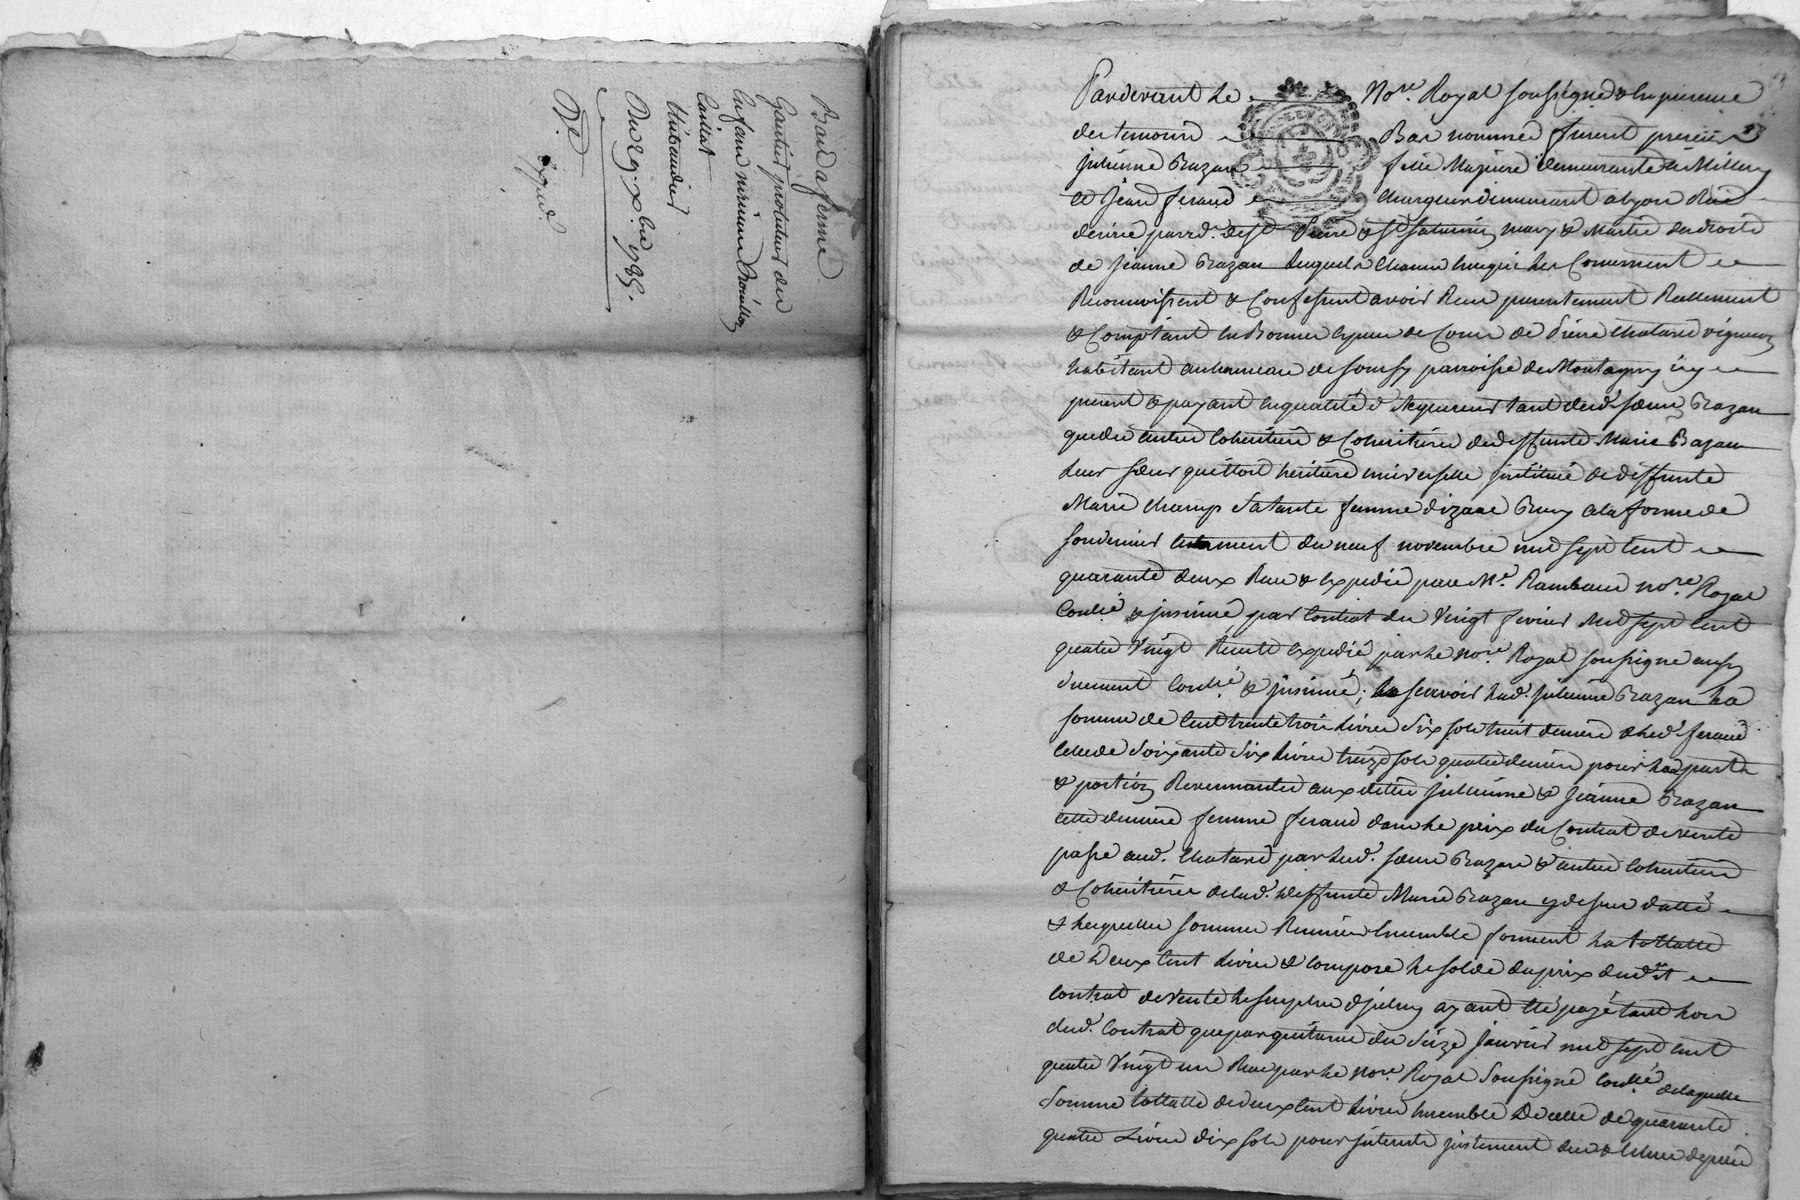 Bail a ferme
Gautier protuteur des
Enfans mineurs Boirillon
Caillat
Thibaudier
Du 29. xbre 1785.
Dt
expéd.
Pardevant le Nore. Royal soussigné & en présence
des temoins Bas nommés furent présens
julienne Bazan fille Majeure demeurante à Millery
et jean feraud chargeur demeurant a lyon Rue
parroisse de st. pierre & st. saturnin mary & Maitre des droits
de jeanne Bazan lesquels chacun en ce qui les Concernent
Reconnoissent & Confessent avoir Reçu présentement Reellement
& Comptant en Bonnes especes de Cours de pierre chatard vigneron
habitant au hameau de sourzy parroisse de Montagny icy
présent & payant en qualité d'Acquereur tant desd. sœurs Bazan
que des autres Coheritiers & Coheritieres de deffunte Marie Bazan
leur sœur qui étoit heritiere universelle instituée de deffunte
Marie champ sa tante femme d'izaac Bruy a la forme de
son dernier testament du neuf novembre mil sept cent
quarante deux Reçu & expedié par Me. Rambaud nore. Royal
Conllé & insinué, par Contrat du vingt fevrier Mil sept cent
quatre vingt Reçu & expedié par le Nore. Royal soussigné aussy
duement Conllé & insinué; sçavoir lad. julienne Bazan la
somme de Cent trente trois livres six sols huit deniers & led. feraud
celle de soixante six livres treize sols quatre deniers pour les parts
& portions Revenantes aux dittes jullienne & jeanne Bazan
cette derniere femme feraud dans le prix du Contrat de vente
passé aud. chatard par lesd. sœurs Bazan & autres Coheritiers
& Coheritieres de lad. deffunte Marie Bazan cy dessus datté
& lesquelles sommes Reunies Ensemble forment la tottalle
de Deux Cent livres & compose le solde du prix dudit
Contrat de vente le surplus d'iceluy ayant été payé tant lors
dud. Contrat que par quittance du seize janvier mil sept cent
quatre vingt un Reçue par le nore. Royal soussigné Conllé de laquelle
somme tottalle de deux Cent livres ensemble De celle de quarante
quatre Livres dix sols pour interets justement dus & échus depuis